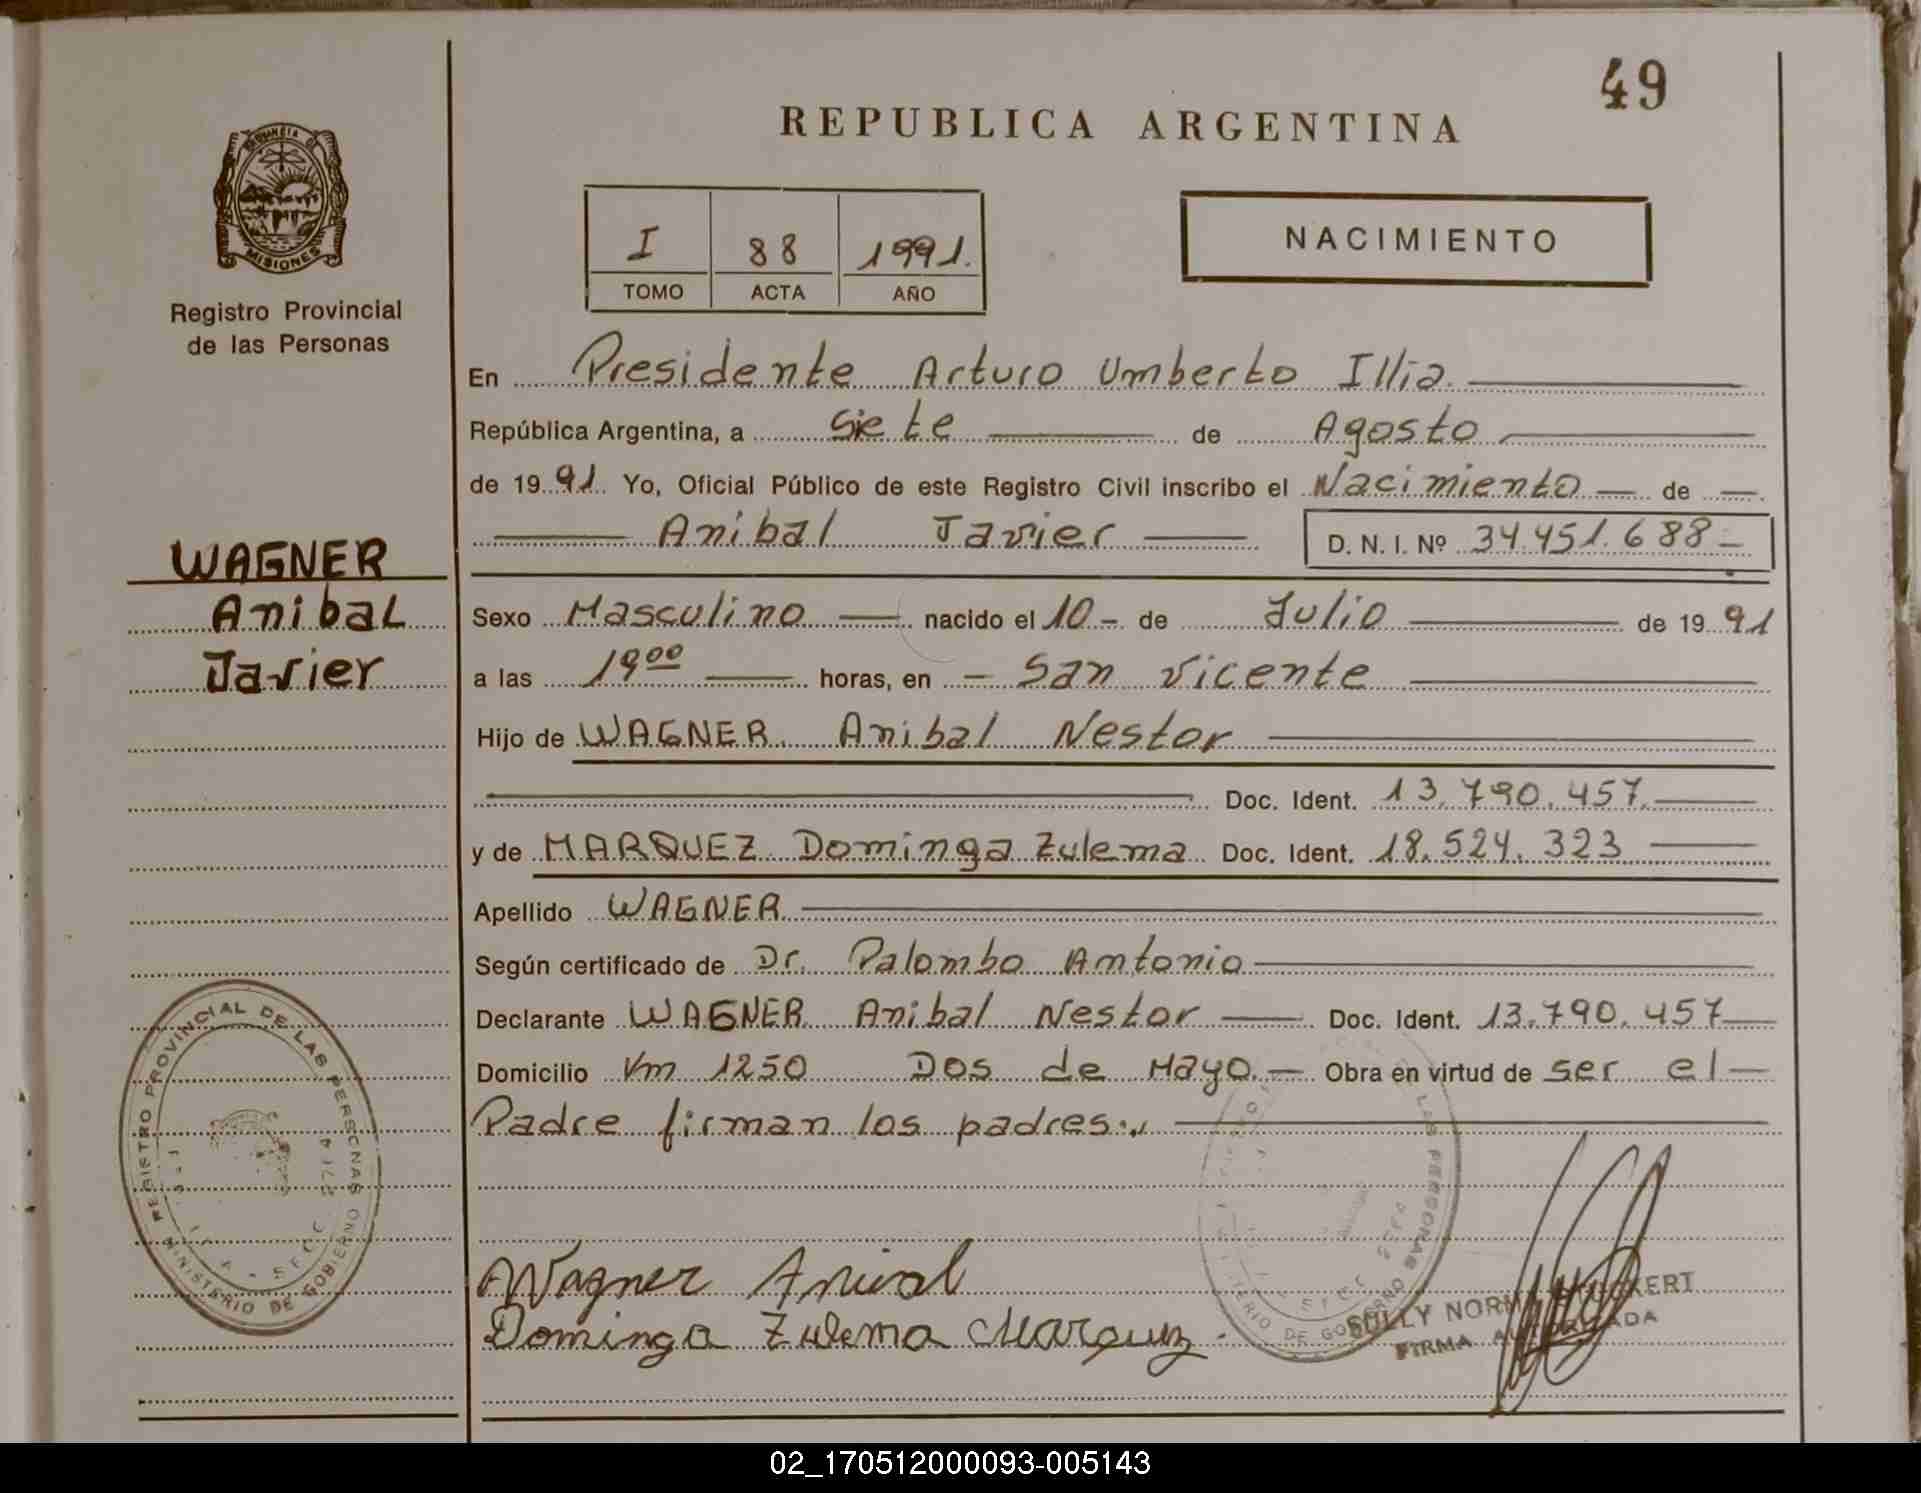 49
REPUBLICA ARGENTINA
PROVINCIA DE
MISIONES
Registro Provincial
de las Personas
I 88 1991.
TOMO ACTA AÑO
NACIMIENTO
En Presidente Arturo Umberto Illia
República Argentina, a Siete de Agosto
de 1991. Yo, Oficial Público de este Registro Civil inscribo el Nacimiento de
Anibal Javier D. N. I. Nº 34.451.688
WAGNER
Anibal
Javier
Sexo Masculino nacido el 10 de Julio de 1991
a las 19 00 horas, en San Vicente
Hijo de WAGNER. Anibal Nestor
Doc. Ident. 13.790.457.
y de MARQUEZ Dominga Zulema Doc. Ident. 18.524.323
Apellido WAGNER
Según certificado de Dr. Palombo Antonio
Declarante WAGNER Anibal Nestor Doc. Ident. 13.790.457
Domicilio Km 1250 Dos de Mayo. Obra en virtud de ser el
Padre firman los padres.
REGISTRO PROVINCIAL DE LAS PERSONAS
MINISTERIO DE GOBIERNO
Wagner Anival
Dominga Zulema Marquez
DE LAS PERSONAS
DE GOBIERNO
SULLY NORMA
FIRMA AUTORIZADA
02_170512000093-005143